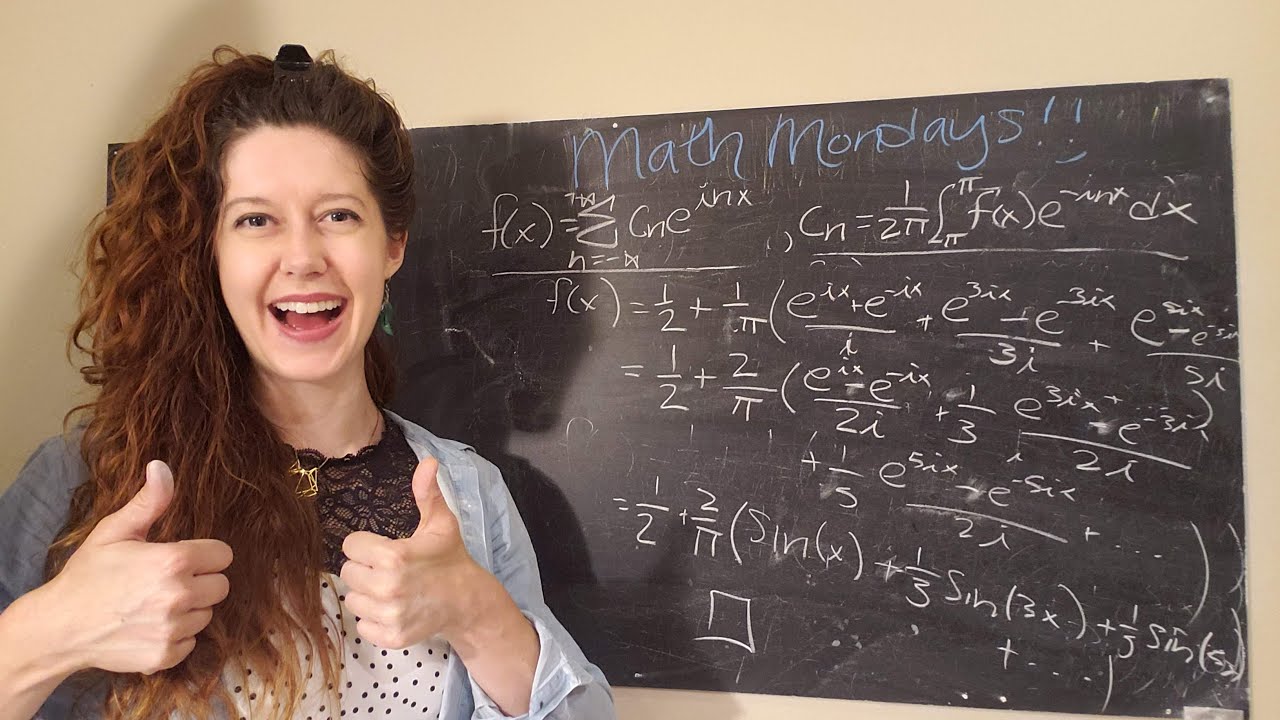 Math Mondays!!
f(x) = \sum_{n=-∞}^{+∞} c_n e^{inx} , c_n = \frac{1}{2π} \int_{-π}^{π} f(x) e^{-inx} dx
f(x) = \frac{1}{2} + \frac{1}{π} ( \frac{e^{ix} + e^{-ix}}{i} + \frac{e^{3ix} - e^{-3ix}}{3i} + \frac{e^{5ix} - e^{-5ix}}{5i}
= \frac{1}{2} + \frac{2}{π} ( \frac{e^{ix} - e^{-ix}}{2i} + \frac{1}{3} \frac{e^{3ix} - e^{-3i}}{2i} )
+ \frac{1}{5} \frac{e^{5ix} - e^{-5ix}}{2i} + .... )
= \frac{1}{2} + \frac{2}{π} ( Sin(x) + \frac{1}{3} Sin(3x) + \frac{1}{5} Sin(5x)
+ .... )